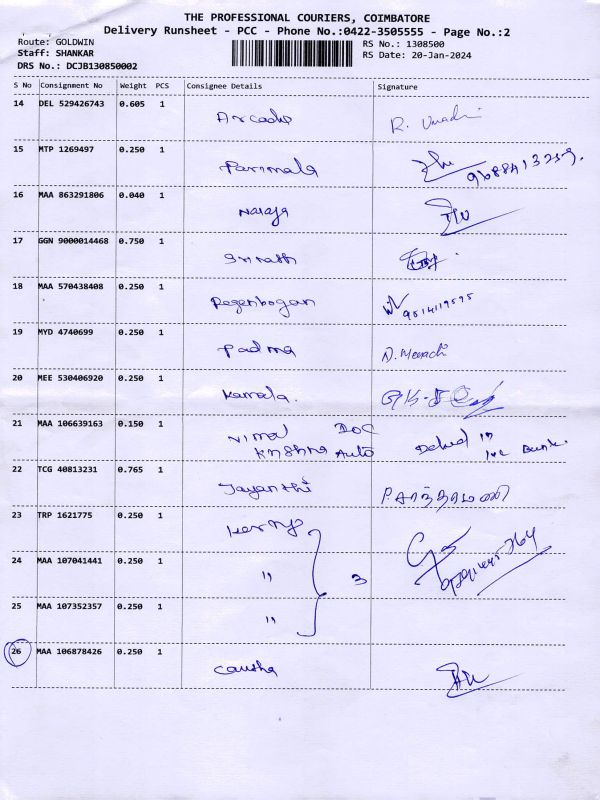 THE PROFESSIONAL COURIERS, COIMBATORE
Delivery Runsheet - PCC - Phone No.:0422-3505555 - Page No.:2
Route: GOLDWIN
Staff: SHANKAR
DRS No.: DCJB130850002
RS No.: 1308500
RS Date: 20-Jan-2024
S No Consignment No Weight PCS Consignee Details Signature
14 DEL 529426743 0.605 1 R.
15 MTP 1269497 0.250 1 Parimala
16 MAA 863291806 0.040 1 Naraja
17 GGN 9000014468 0.750 1
18 MAA 570438408 0.250 1 Regenbogan 9514119595
19 MYD 4740699 0.250 1 Padma D. Meenachi
20 MEE 530406920 0.250 1 Kamala.
21 MAA 106639163 0.150 1 Nimal DOC
Krishna Auto
22 TCG 40813231 0.765 1 Jayanthi P. சாந்தாமணி
23 TRP 1621775 0.250 1
24 MAA 107041441 0.250 1 " 3
25 MAA 107352357 0.250 1 "
26 MAA 106878426 0.250 1